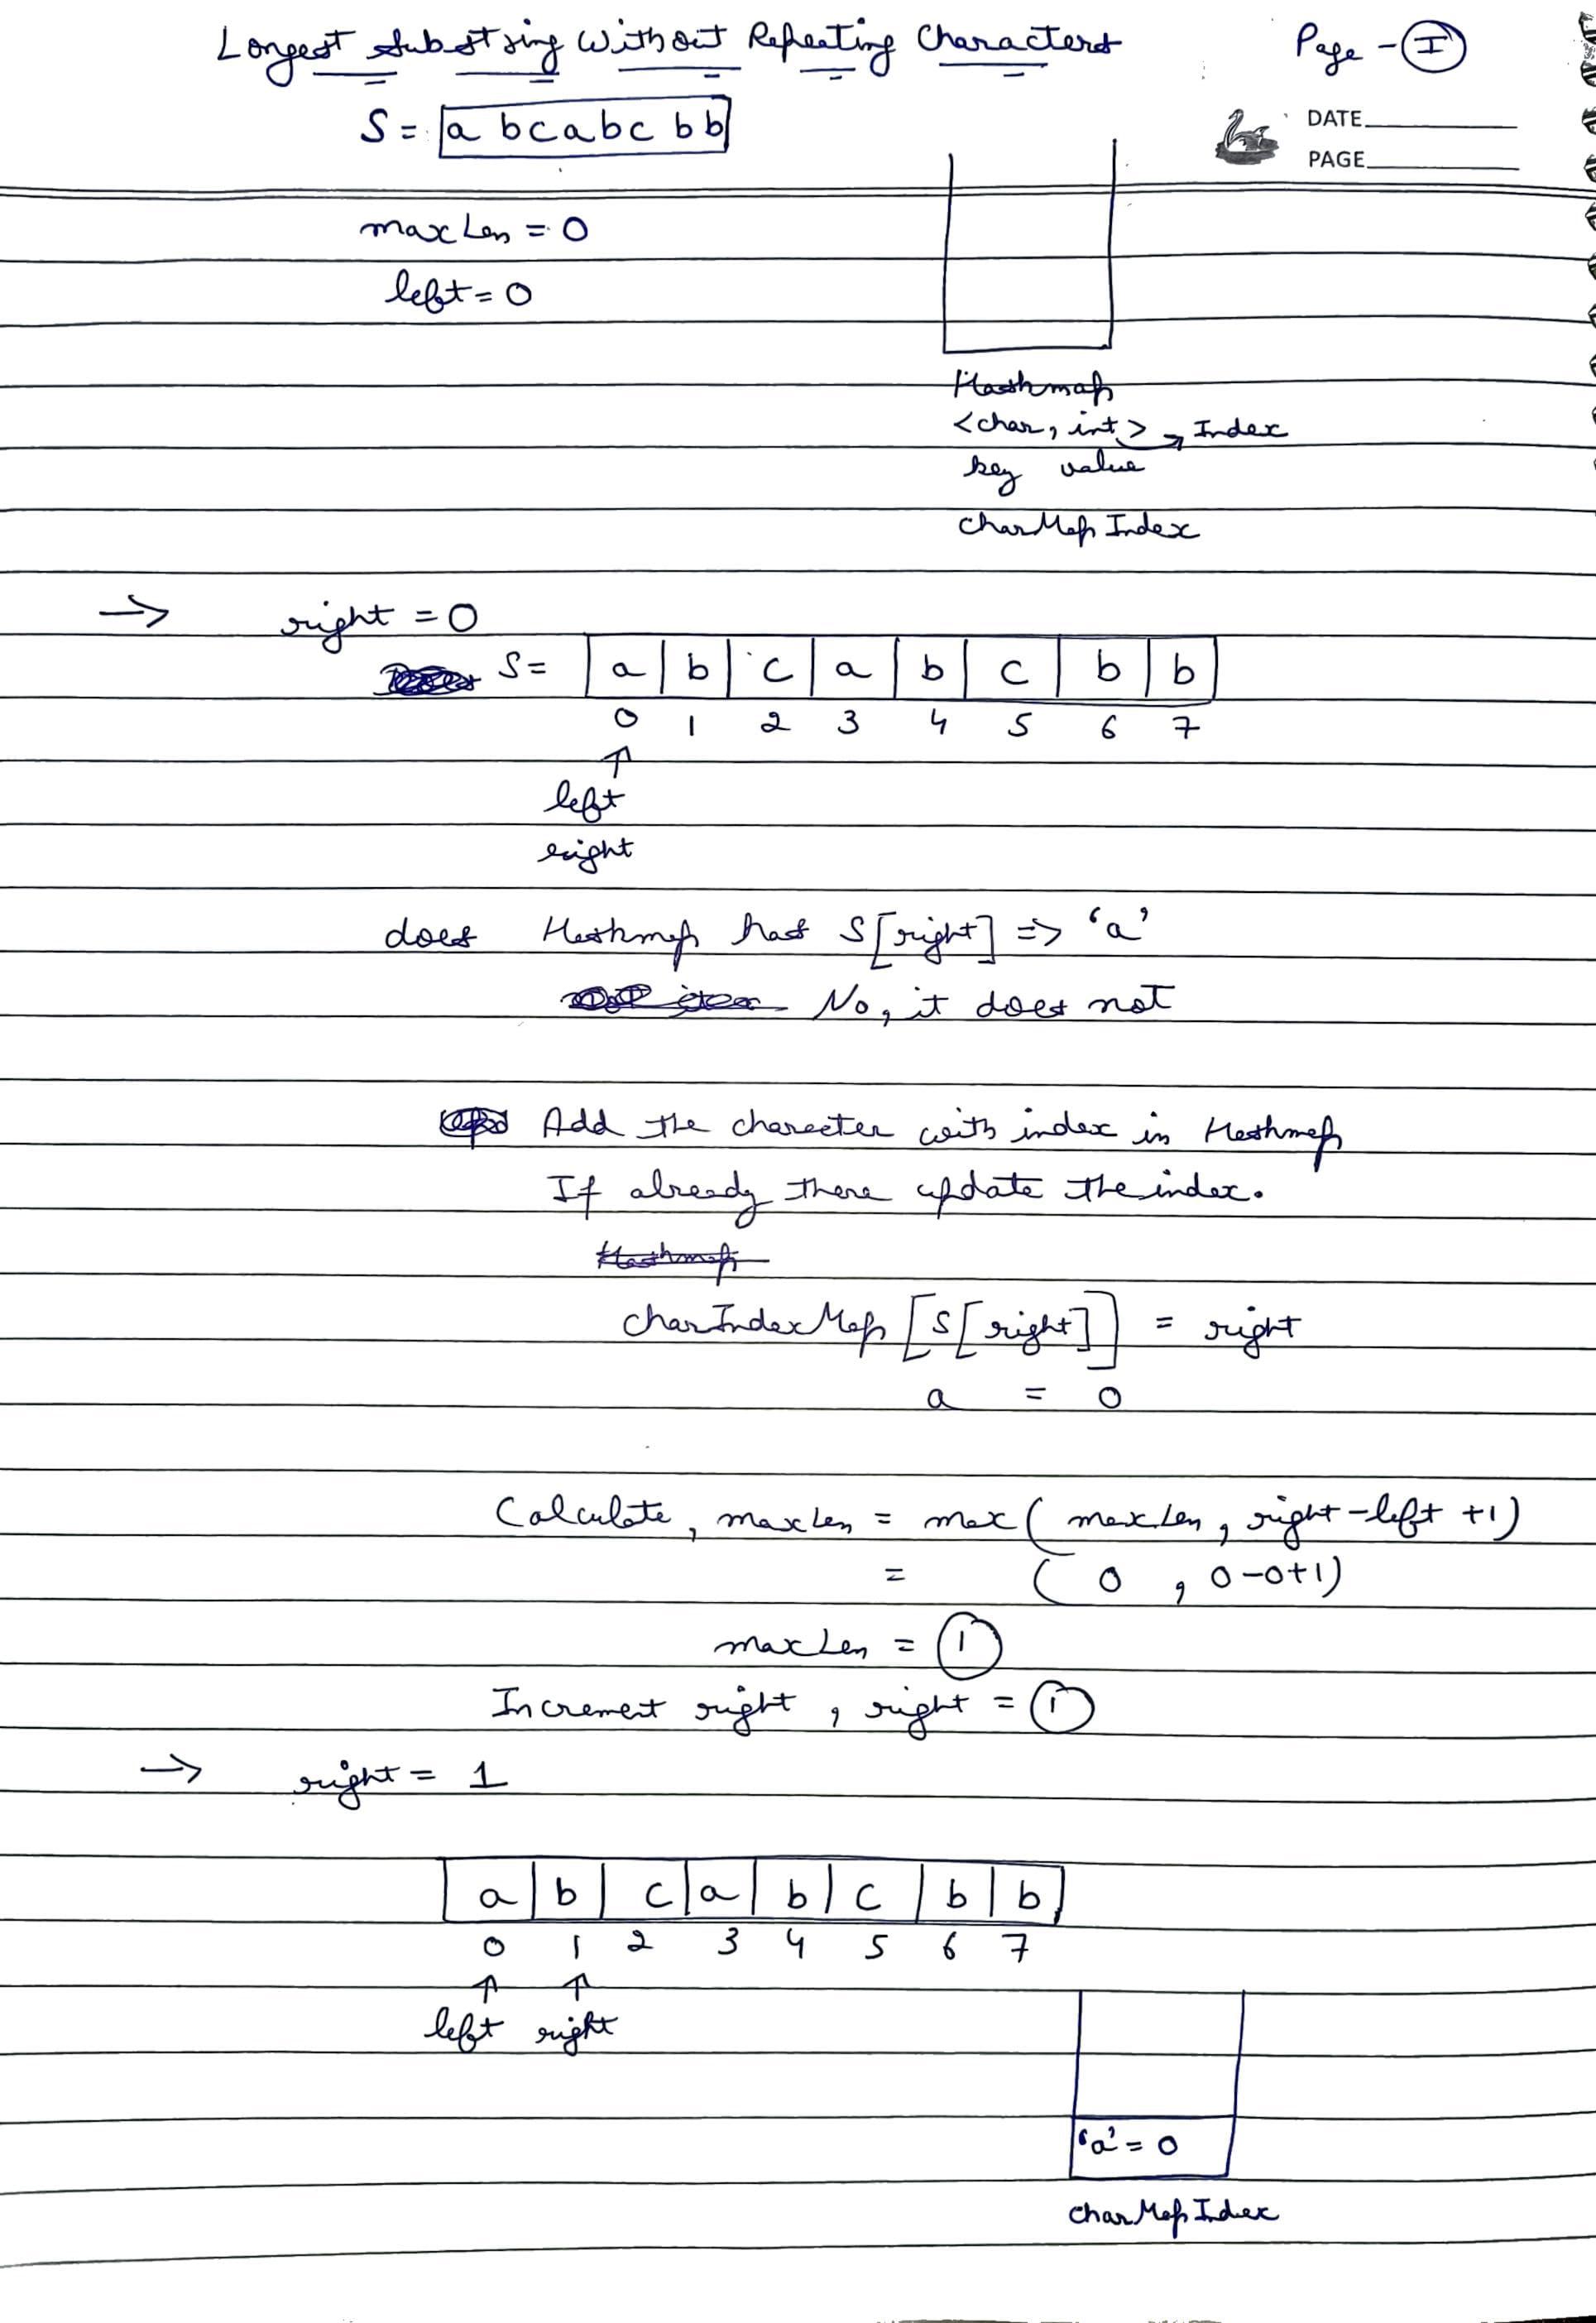 Longest Substring Without Repeating Characters
Page - I
S = a b c a b c b b
DATE
PAGE
maxLen = 0
left = 0
Hashmap
<char, int> → Index
key value
charMapIndex
→ right = 0
S = a b c a b c b b
0 1 2 3 4 5 6 7
↑
left
right
does Hashmap has S[right] => 'a'
No, it does not
Add the character with index in Hashmap
If already there update the index.
Hashmap
charIndexMap [S[right]] = right
a = 0
Calculate, maxLen = max( maxLen, right-left +1)
= ( 0 , 0-0+1)
maxLen = 1
Increment right, right = 1
→ right = 1
a b c a b c b b
0 1 2 3 4 5 6 7
↑ ↑
left right
'a' = 0
charMapIndex